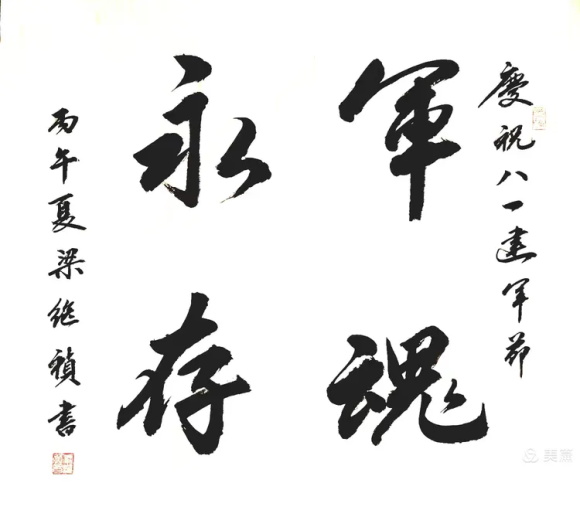 慶祝八一建军节
军魂
永存
丙午夏梁继祯書
美篇